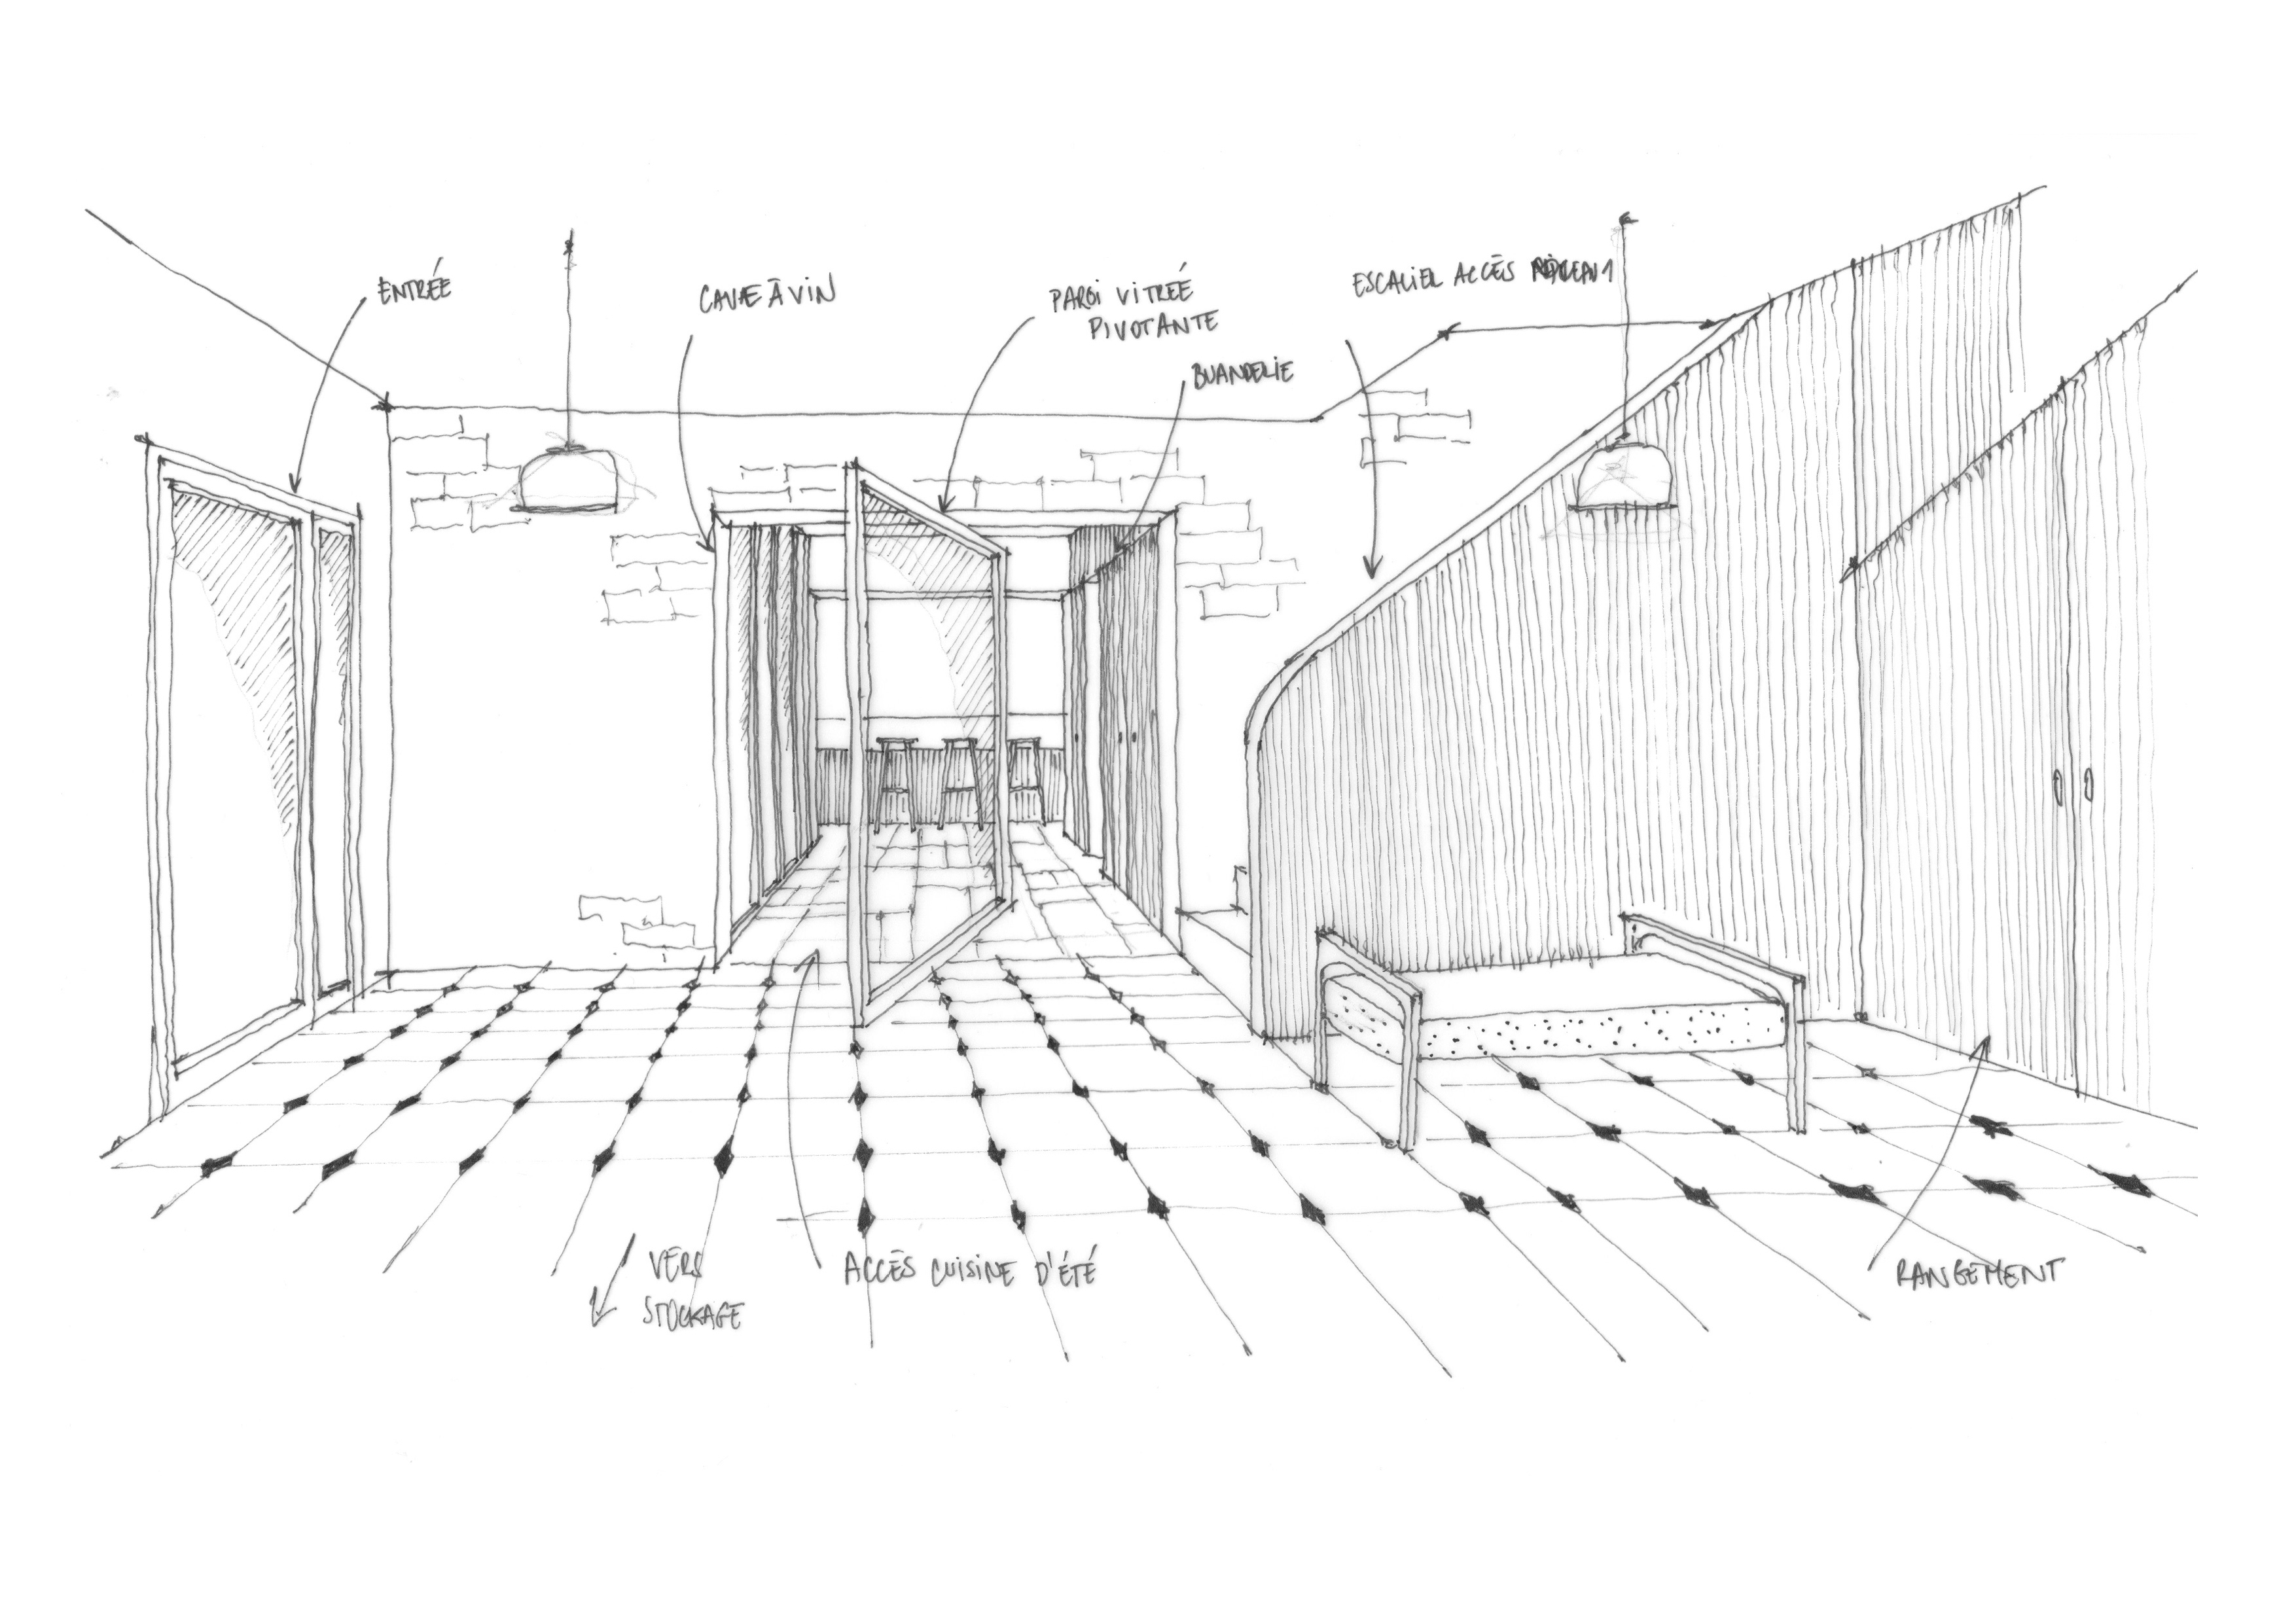 ENTRÉE
CAVE À VIN
PAROI VITRÉE
PIVOTANTE
BUANDERIE
ESCALIER ACCÈS NIVEAU 1
VERS
STOCKAGE
ACCÈS CUISINE D'ÉTÉ
RANGEMENT